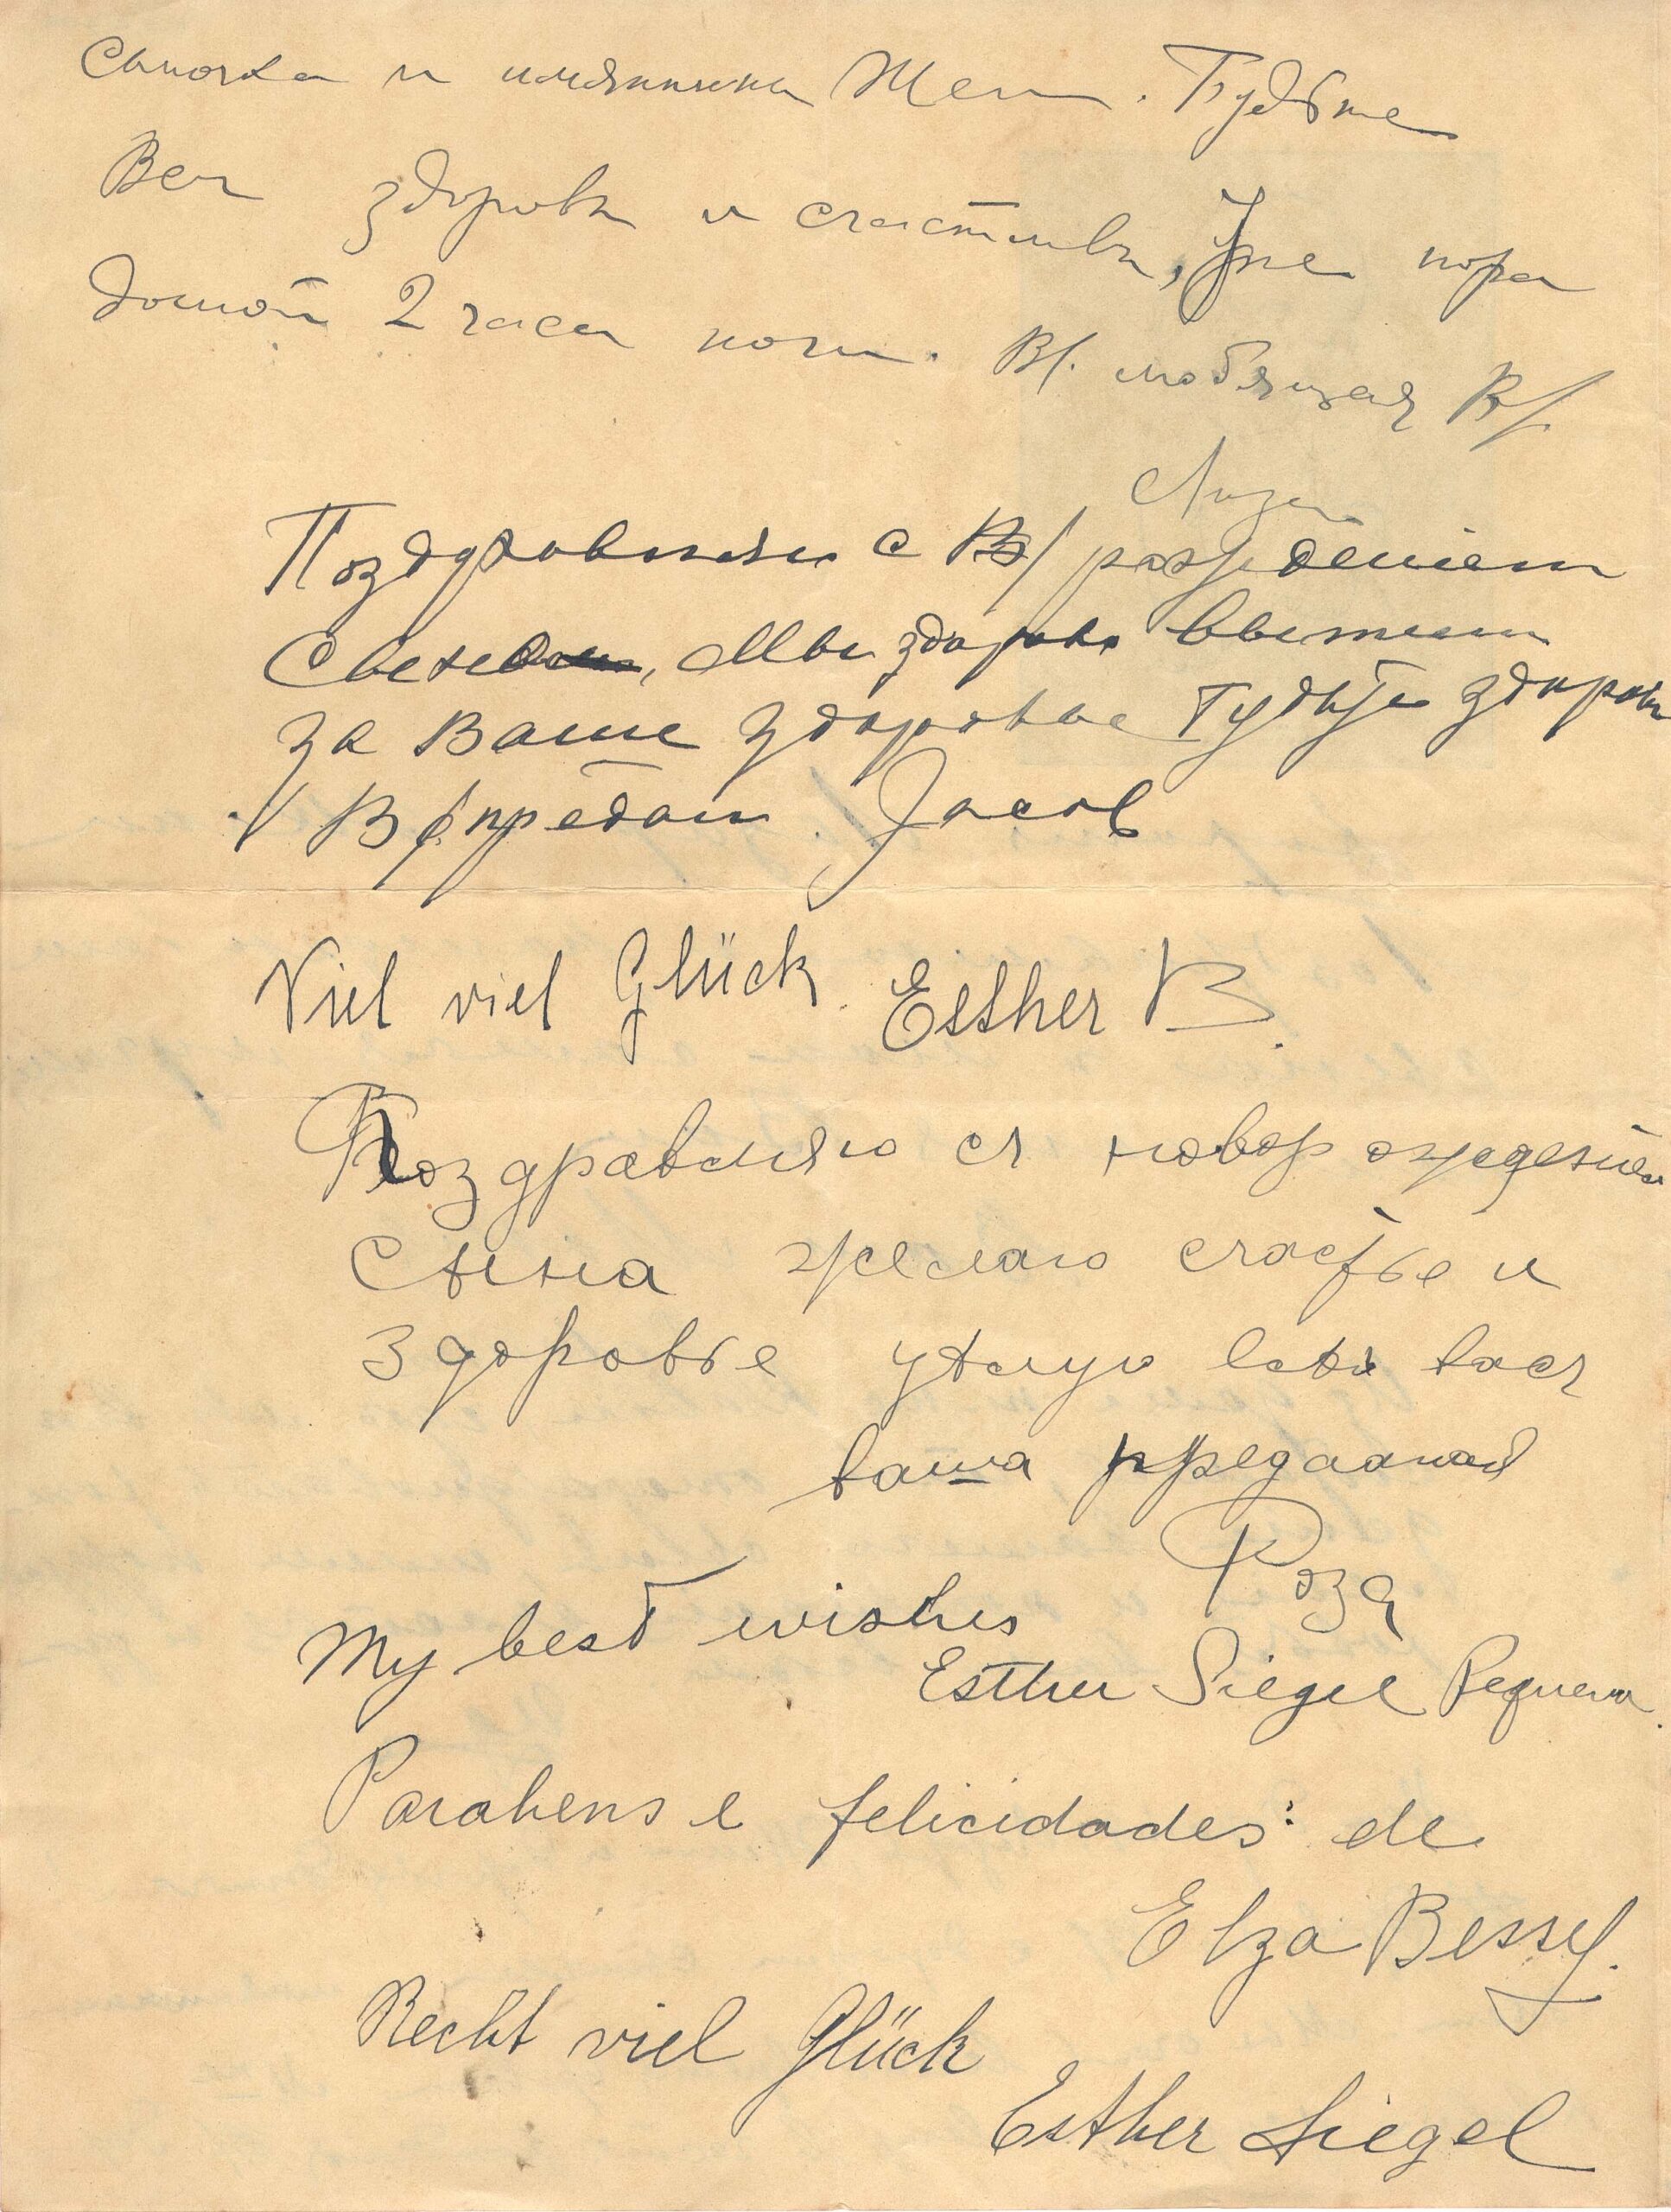 Сыночка и племянника Жени. Будьте
Все здоровы и счастливы, Уже пора
домой 2 часа ночи. В/. любящая В/.
Лиза
Поздровляю с В/ рождением
Мы здорово выпили
за Ваше здоровье Будьте здоровы
В/ предан. Jacob
Viel viel Glück. Esther B.
Поздравляю съ новорожденем
Сына желаю счастье и
здоровье целую всех васъ
ваша предааная
Роза
My best wishes
Esther Siegel Pequena.
Parabens e felicidades: de
Elza Bessel.
Recht viel Glück
Esther Siegel